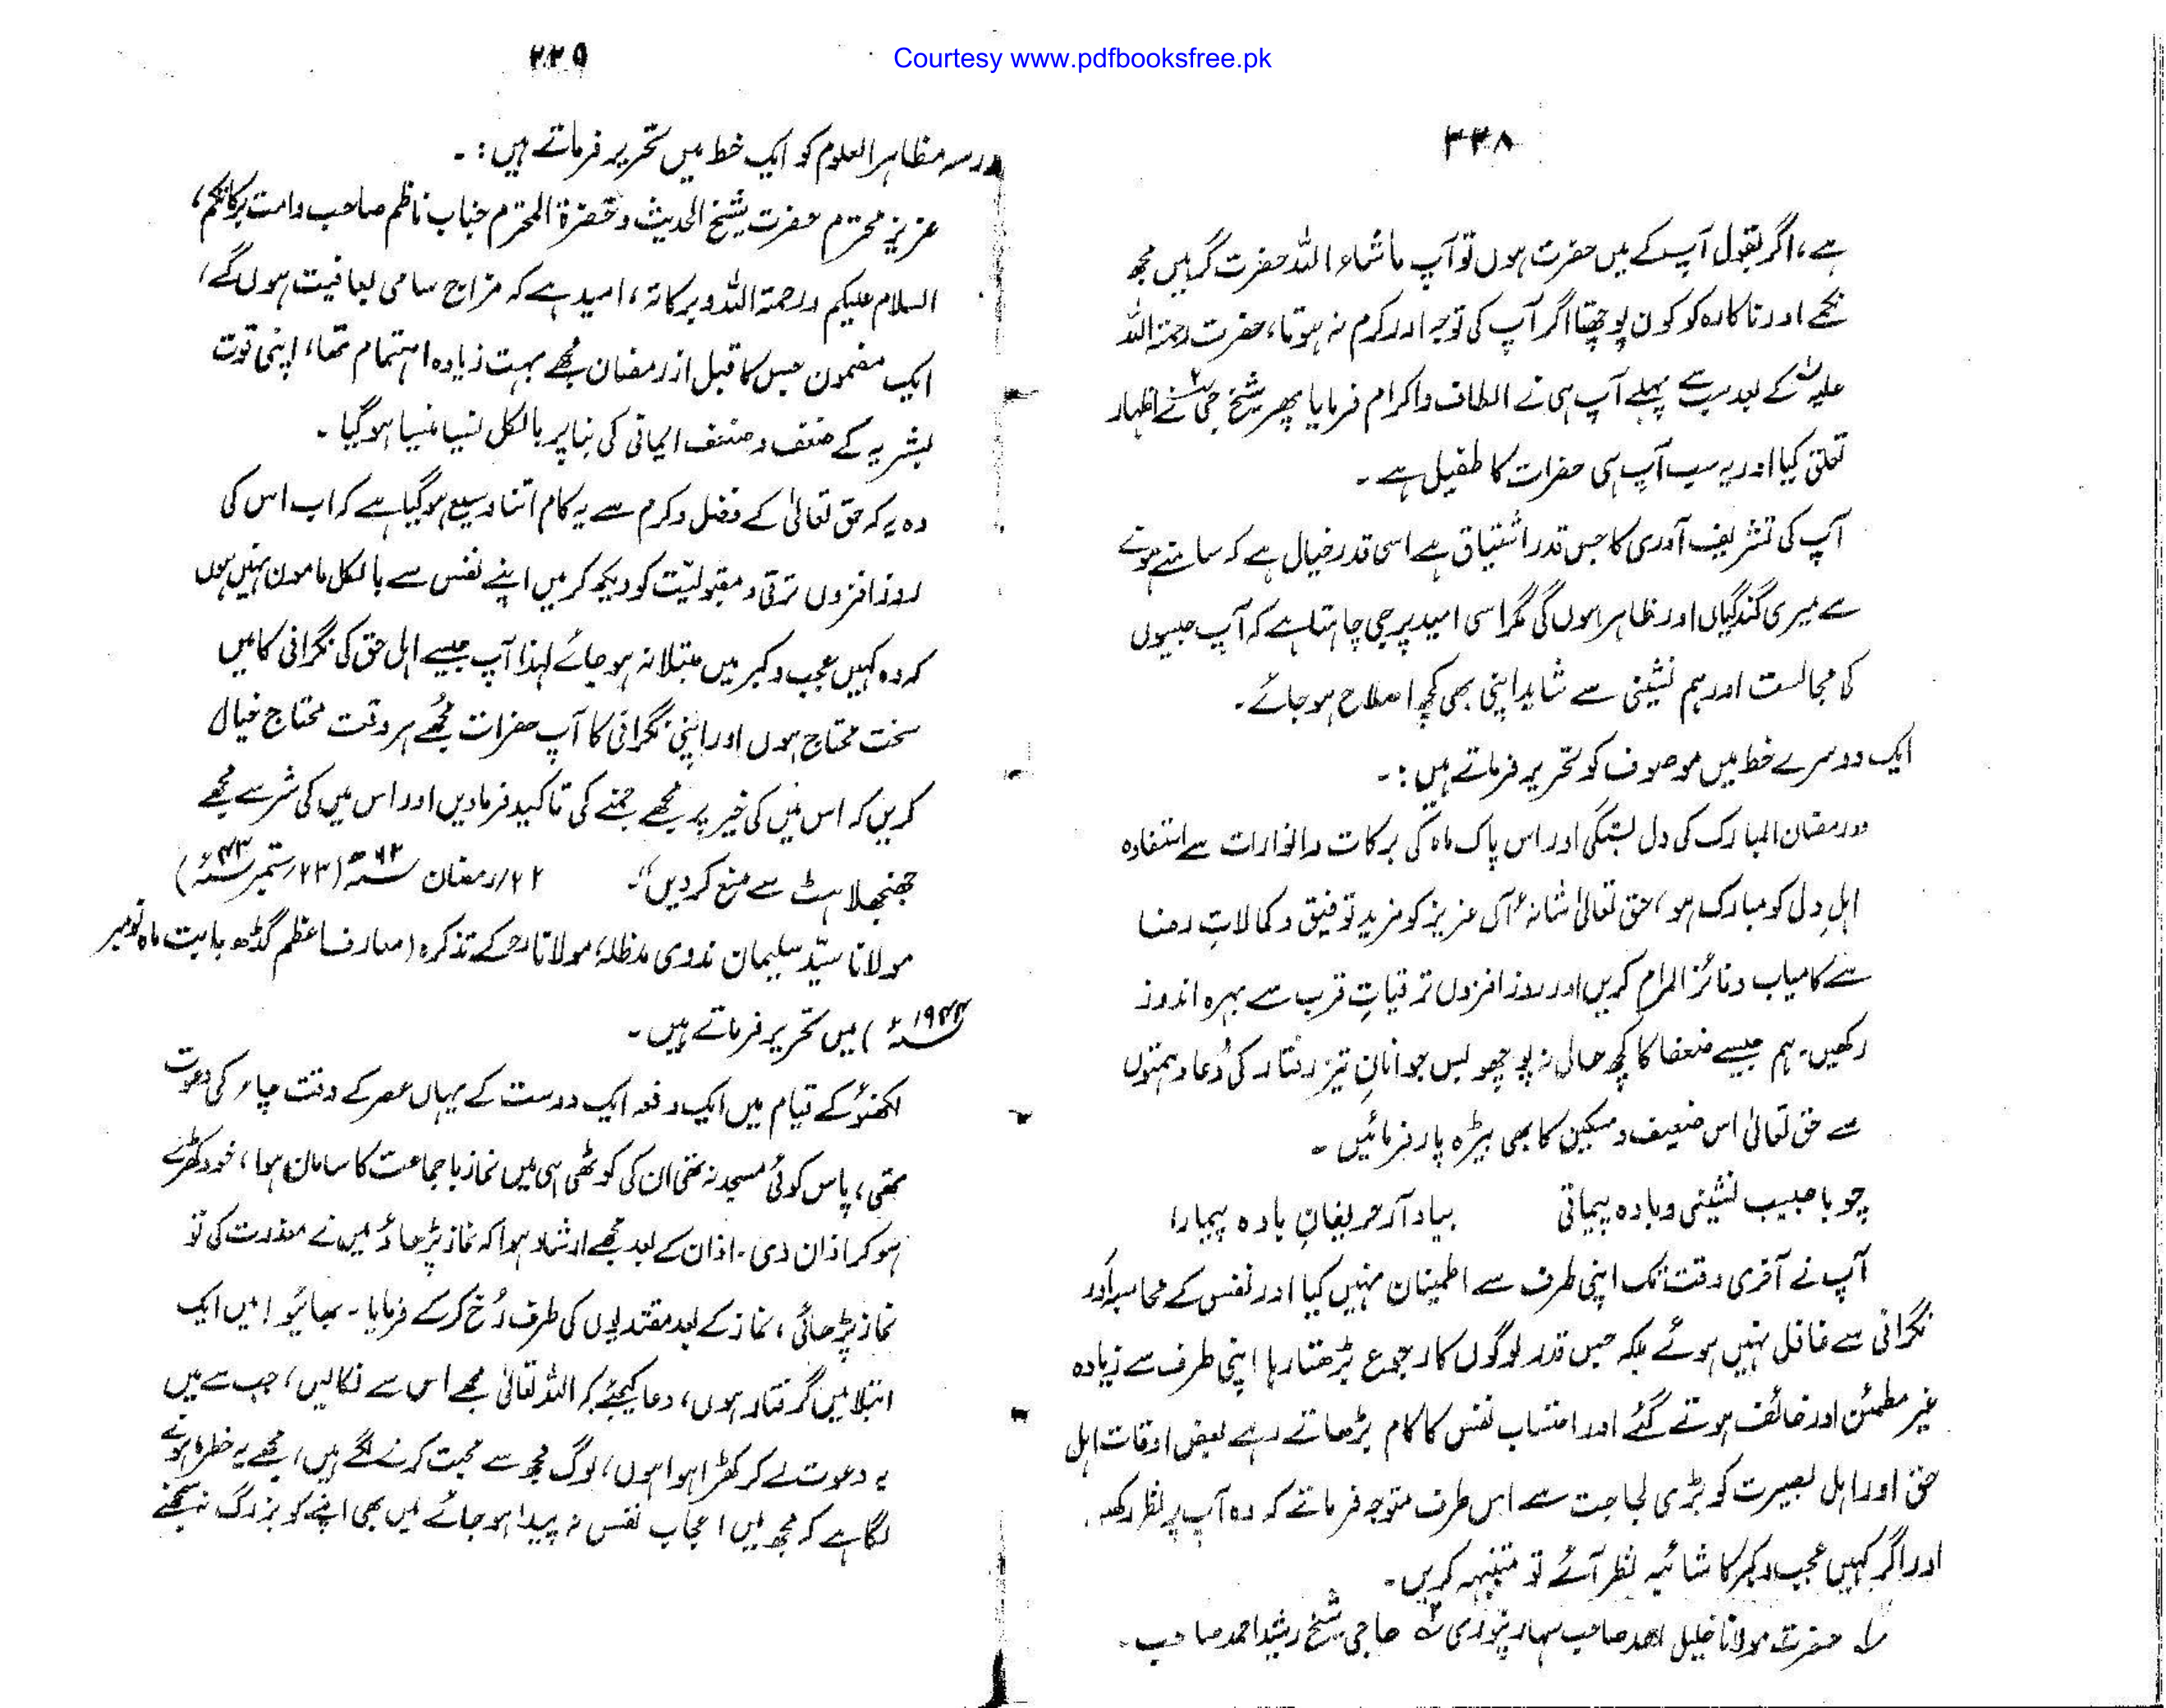 Courtesy www.pdfbooksfree.pk
۲۲۸
ہے، اگر بقول آپ کے میں حضرت ہوں تو آپ ماشاء اللہ حضرت گر ہیں مجھ
نکمے اور ناکارہ کو کون پوچھتا اگر آپ کی توجہ اور کرم نہ ہوتا، حضرت رحمۃ اللہ
علیہ۱؎ کے بعد سب سے پہلے آپ ہی نے الطاف واکرام فرمایا پھر شیخ جی۲؎ نے اظہار
تعلق کیا اور یہ سب آپ ہی حضرات کا طفیل ہے۔
آپ کی تشریف آوری کا جس قدر اشتیاق ہے اسی قدر خیال ہے کہ سامنے ہونے
سے میری گندگیاں اور ظاہر ہوں گی مگر اسی امید پر جی چاہتا ہے کہ آپ جیسوں
کی مجالست اور ہم نشینی سے شاید اپنی بھی کچھ اصلاح ہو جائے۔
ایک دوسرے خط میں موصوف کو تحریر فرماتے ہیں:۔
"رمضان المبارک کی دل بستگی اور اس پاک ماہ کی برکات و انوارات سے استفادہ
اہلِ دل کو مبارک ہو، حق تعالیٰ شانہٗ آں عزیز کو مزید توفیق و کمالاتِ رضا
سے کامیاب و فائز المرام کریں اور روز افزوں ترقیاتِ قرب سے بہرہ اندوز
رکھیں۔ ہم جیسے ضعفا کا کچھ حال نہ پوچھو بس جوانانِ تیز رفتار کی دُعا و ہمتوں
سے حق تعالیٰ اس ضعیف و مسکین کا بھی بیڑہ پار فرمائیں۔
چو با حبیب نشینی و بادہ پیمائی بیاد آر حریفانِ بادہ پیما را
آپ نے آخری وقت تک اپنی طرف سے اطمینان نہیں کیا اور نفس کے محاسبہ اور
نگرانی سے غافل نہیں ہوئے بلکہ جس قدر لوگوں کا رجوع بڑھتا رہا اپنی طرف سے زیادہ
غیر مطمئن اور خائف ہوتے گئے اور احتساب نفس کا کام بڑھاتے رہے بعض اوقات اہل
حق اور اہل بصیرت کو بڑی لجاجت سے اس طرف متوجہ فرماتے کہ وہ آپ پر نظر رکھیں
اور اگر کہیں عجب و کبر کا شائبہ نظر آئے تو متنبہ کریں۔
۱؎ حضرت مولانا خلیل احمد صاحب سہارنپوری ۲؎ حاجی شیخ رشید احمد صاحب۔
۲۲۹
مدرسہ مظاہر العلوم کو ایک خط میں تحریر فرماتے ہیں:۔
عزیز محترم حضرت شیخ الحدیث و حضرۃ المحترم جناب ناظم صاحب دامت برکاتکم،
السلام علیکم ورحمۃ اللہ وبرکاتہ، امید ہے کہ مزاج سامی بعافیت ہوں گے،
ایک مضمون جس کا قبل از رمضان مجھے بہت زیادہ اہتمام تھا، اپنی قوت
بشریہ کے ضعف و ضعف ایمانی کی بنا پر بالکل نسیا منسیا ہو گیا۔
وہ یہ کہ حق تعالیٰ کے فضل و کرم سے یہ کام اتنا وسیع ہو گیا ہے کہ اب اس کی
روز افزوں ترقی و مقبولیّت کو دیکھ کر میں اپنے نفس سے بالکل مامون نہیں ہوں
کہ وہ کہیں عجب و کبر میں مبتلا نہ ہو جائے لہذا آپ جیسے اہل حق کی نگرانی کا میں
سخت محتاج ہوں اور اپنی نگرانی کا آپ حضرات مجھے ہر وقت محتاج خیال
کریں کہ اس میں کی خیر پر مجھے جمنے کی تاکید فرما دیں اور اس میں کی شر سے مجھے
جھنجھلاہٹ سے منع کر دیں"۔ ۲۲/ رمضان ۶۲ھ (۲۳/ ستمبر ۴۳ء)
مولانا سیّد سلیمان ندوی مدظلہٗ مولاناؒ کے تذکرہ (معارف اعظم گڈھ بابت ماہ نومبر
۱۹۴۴ء) میں تحریر فرماتے ہیں۔
لکھنؤ کے قیام میں ایک دفعہ ایک دوست کے یہاں عصر کے وقت چاء کی دعوت
تھی، پاس کوئی مسجد نہ تھی ان کی کوٹھی ہی میں نماز باجماعت کا سامان ہوا، خود کھڑے
ہو کر اذان دی۔ اذان کے بعد مجھے ارشاد ہوا کہ نماز پڑھاؤ میں نے معذرت کی تو
نماز پڑھائی، نماز کے بعد مقتدیوں کی طرف رُخ کر کے فرمایا۔ بھائیو! میں ایک
ابتلا میں گرفتار ہوں، دعا کیجئے کہ اللہ تعالیٰ مجھے اس سے نکالیں، جب سے میں
یہ دعوت لے کر کھڑا ہوا ہوں، لوگ مجھ سے محبت کرنے لگے ہیں، مجھے یہ خطرہ ہونے
لگا ہے کہ مجھ میں اعجاب نفس نہ پیدا ہو جائے میں بھی اپنے کو بزرگ نہ سمجھنے